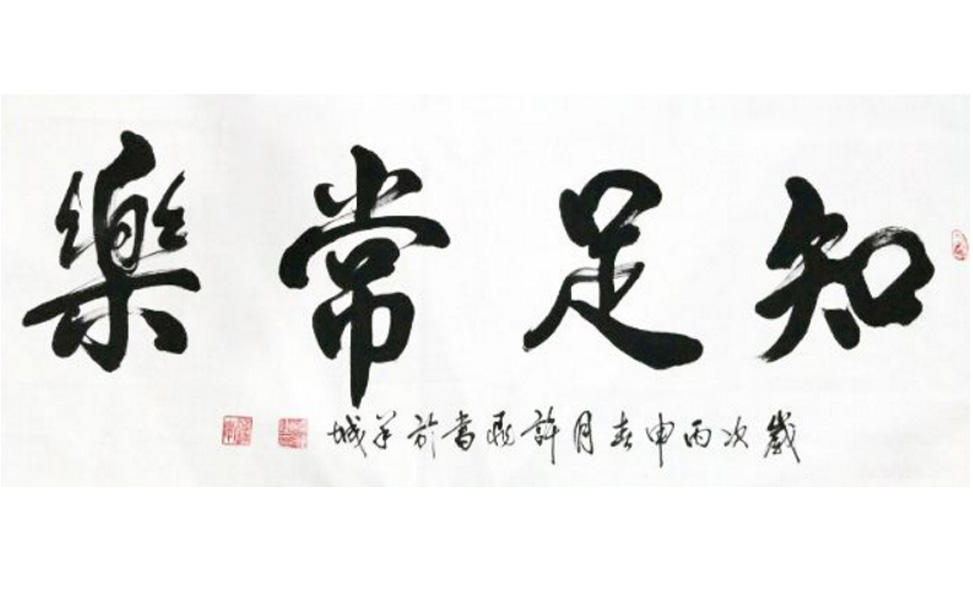 知足常樂
歲次丙申春月許鼎書於羊城